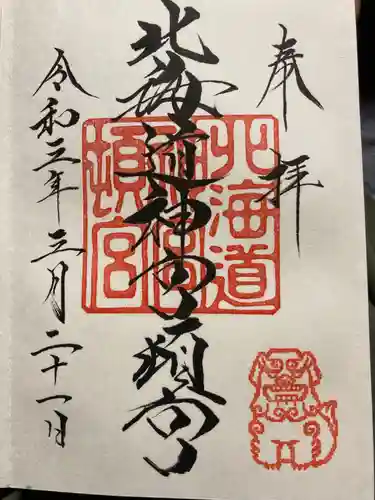 奉拝
北海道神宮頓宮
北海道
神宮
頓宮
令和三年三月二十一日